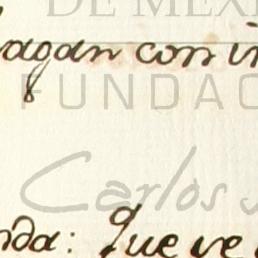 DE MEXI
agan con in
FUNDAC
Carlos
nda: Que ve